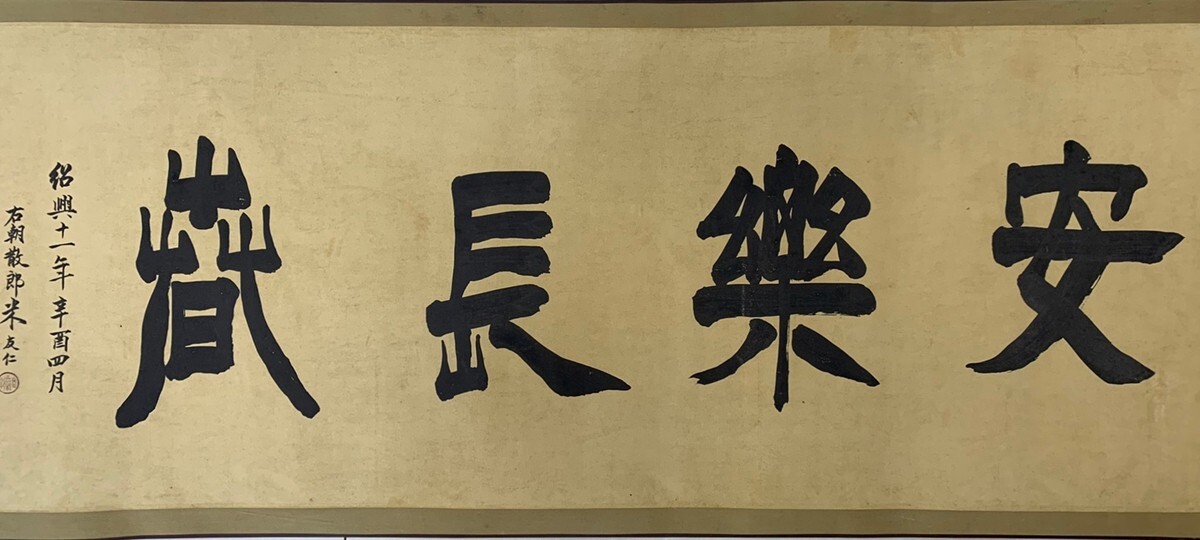 安樂長春
紹興十一年辛酉四月
右朝散郎米友仁